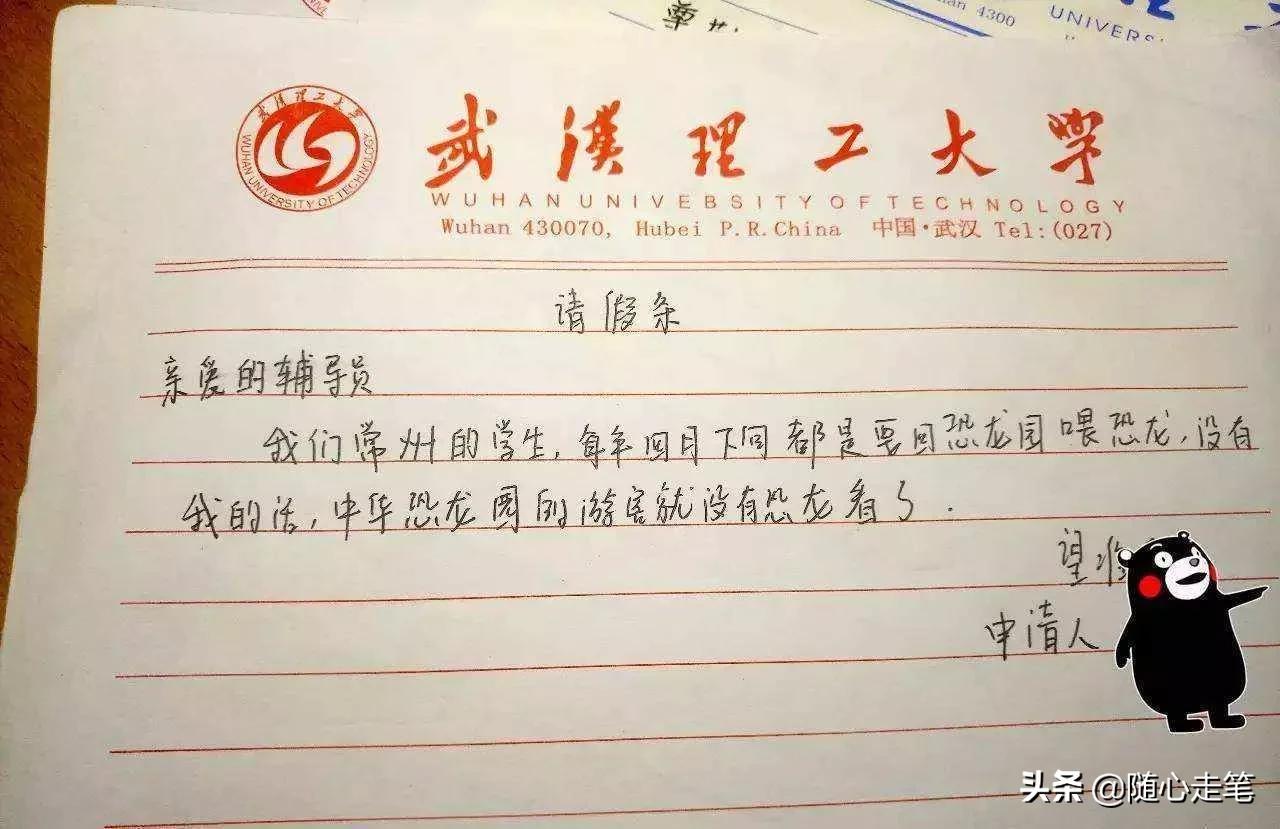 Wuhan 4300
UNIVERS
武漢理工大學
WUHAN UNIVERSITY OF TECHNOLOGY
武漢理工大學
WUHAN UNIVEBSITY OF TECHNOLOGY
Wuhan 430070, Hubei P.R.China 中国·武汉 Tel:(027)
请假条
亲爱的辅导员
我们常州的学生,每年四月下旬都是要回恐龙园喂恐龙,没有
我的话,中华恐龙园的游客就没有恐龙看了.
望准
申请人
头条 @随心走笔